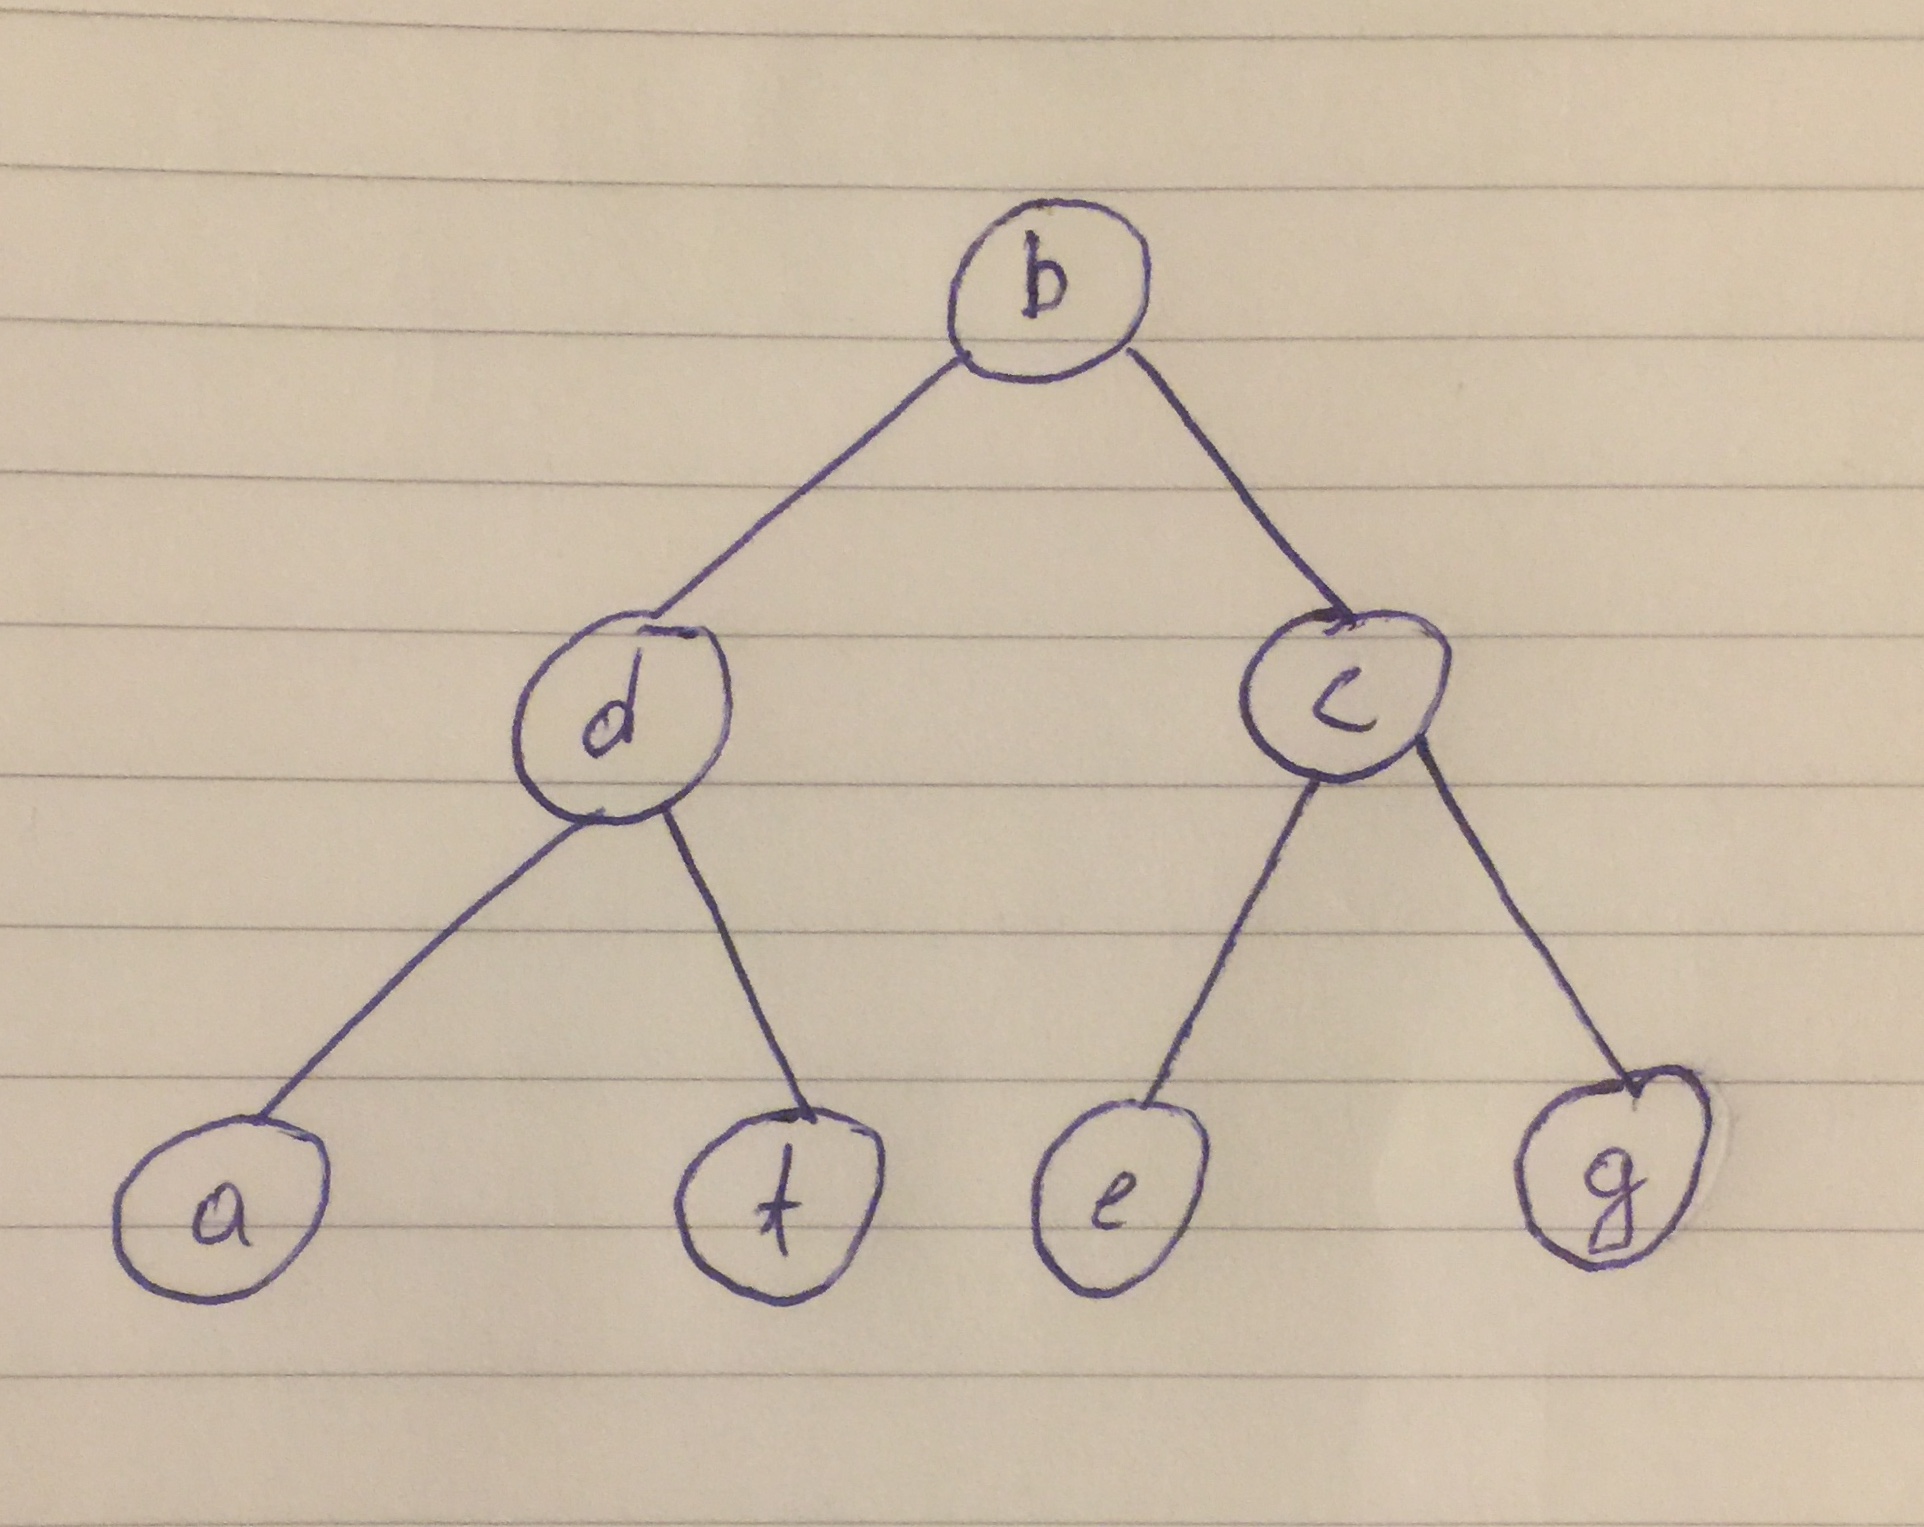 b
d c
a f e g